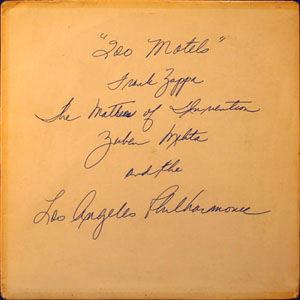 "200 Motels"
Frank Zappa
The Mothers of Invention
Zubin Mehta
and the
Los Angeles Philharmonic